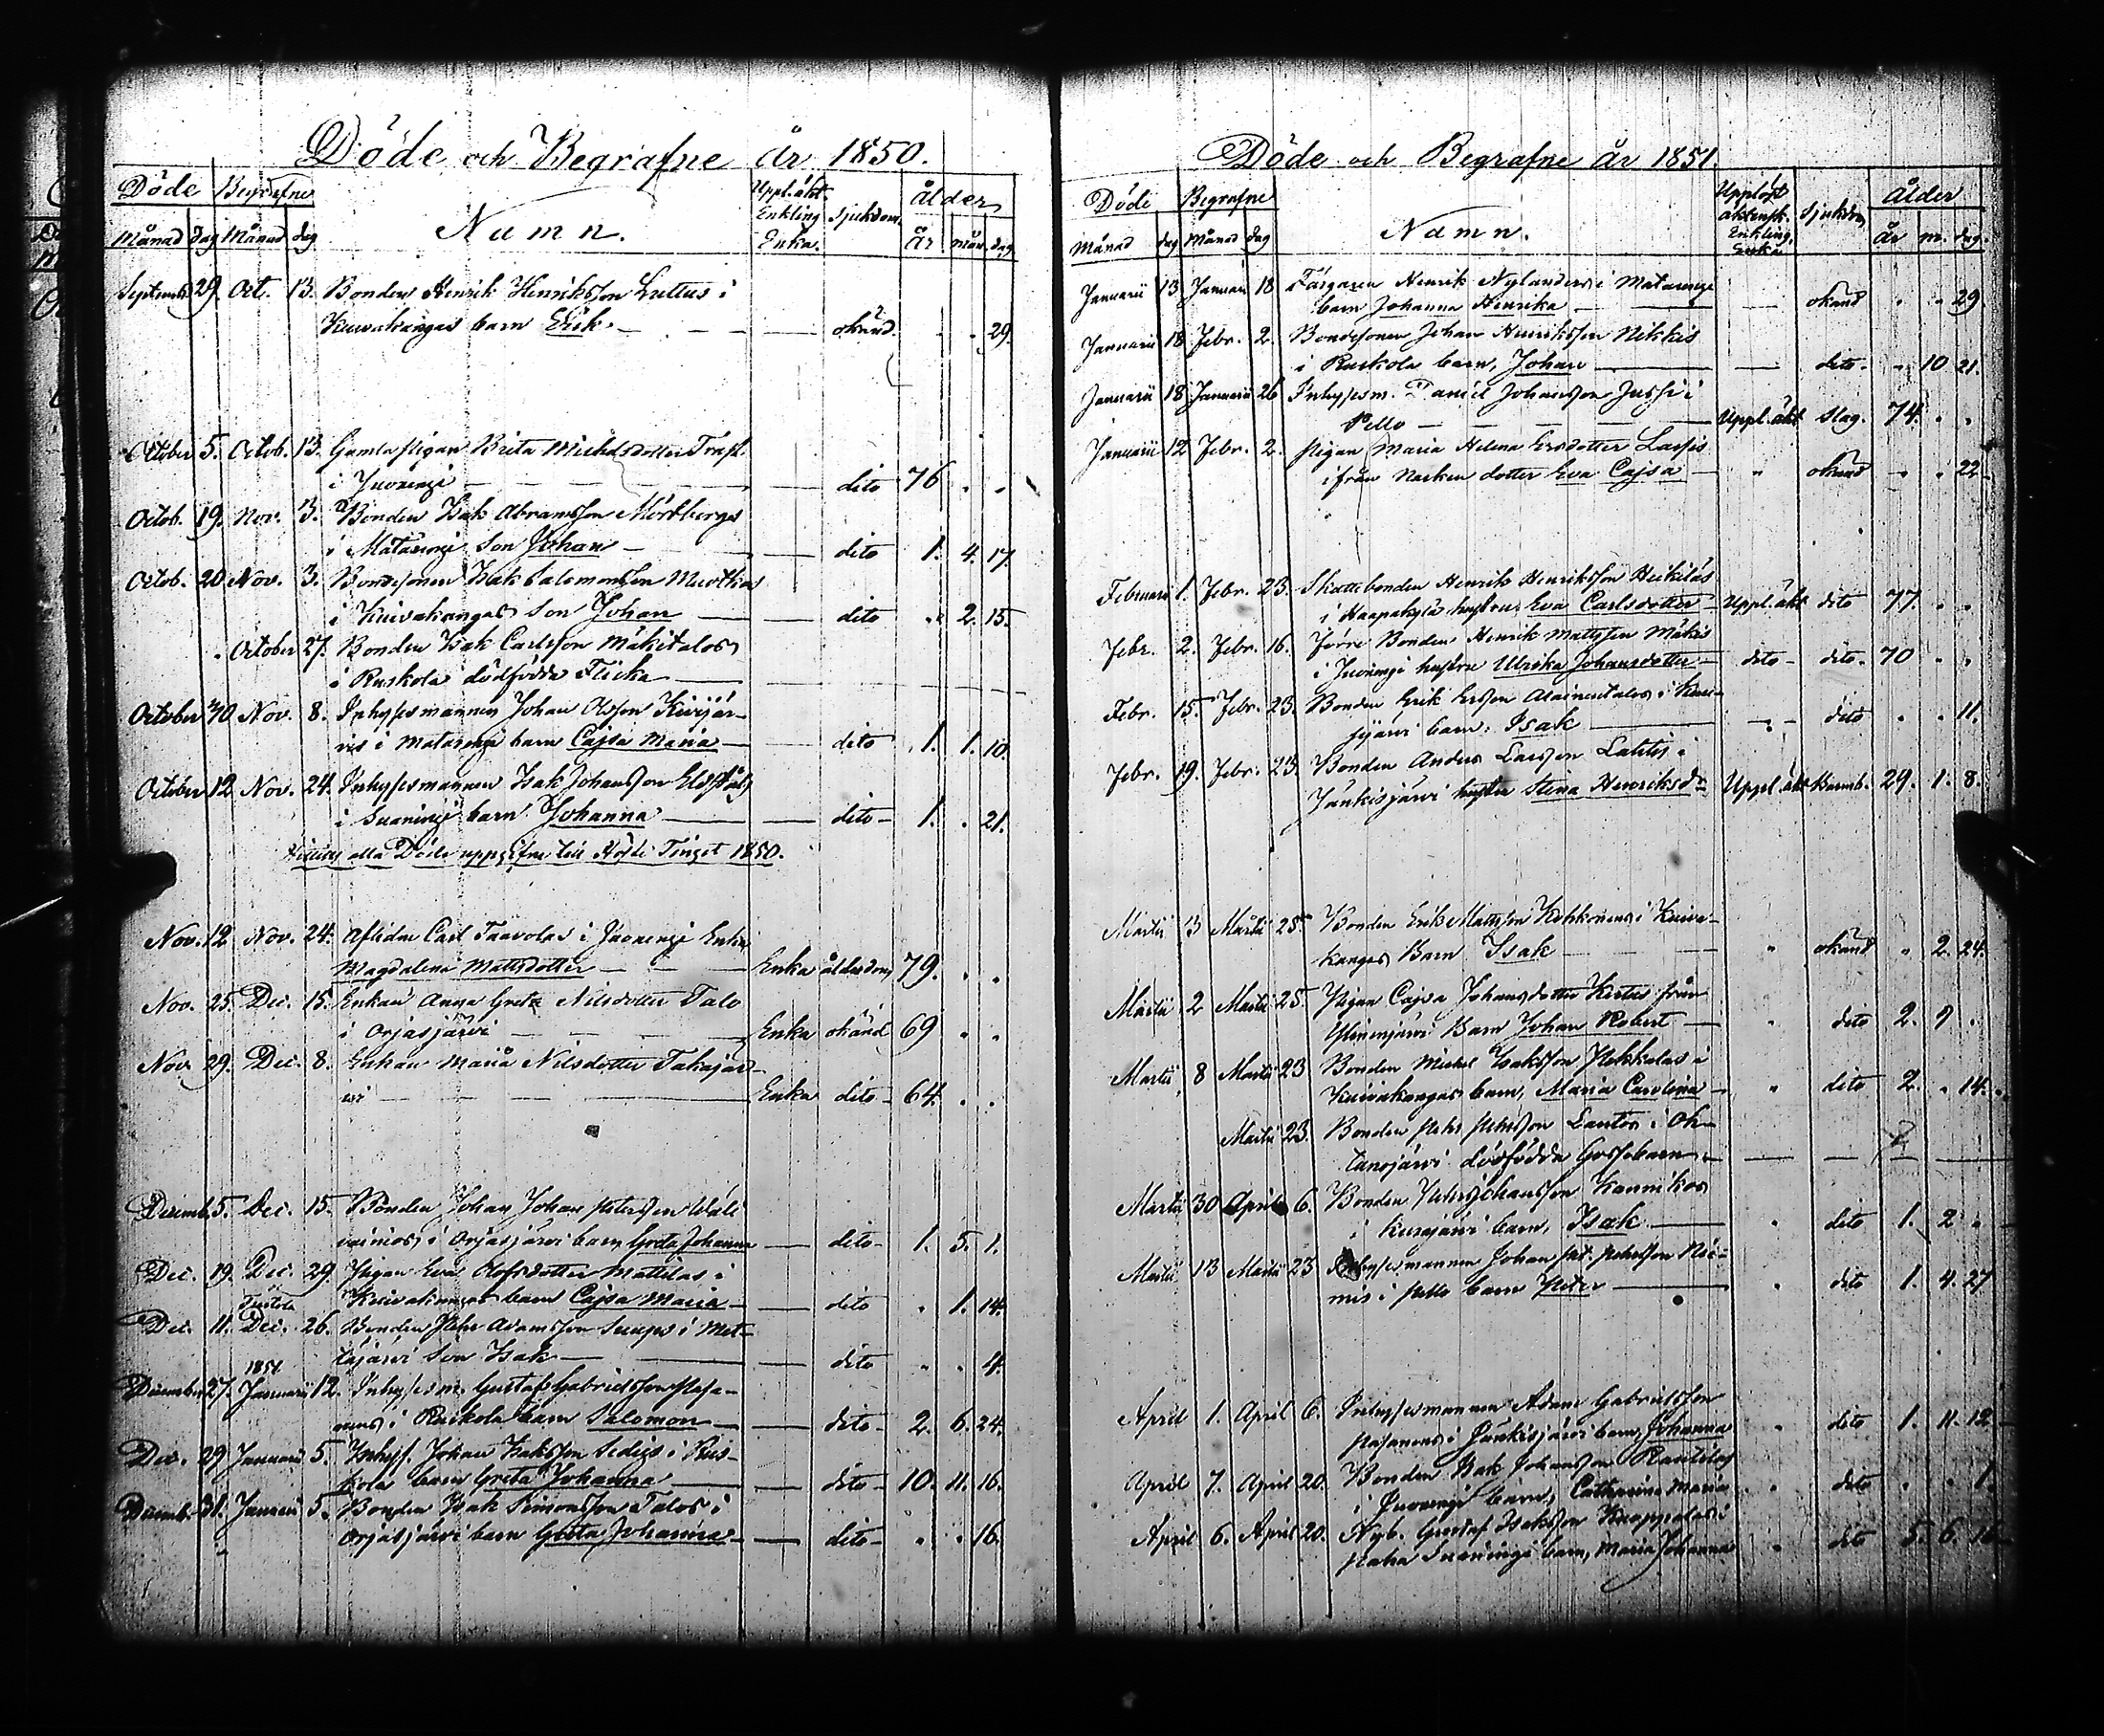 Döde och Begrafne år 1850.
Döde Begrafne Namn. Uppl. äkt. Enkling Enka. sjukdom. ålder
Månad dag Månad dag år mån. dag
Septemb. 29. Oct. 13. Bonden Henrik Henriksson i
Kuivakangas barn Erik. — okänd. . . 29.
October 5. Octob. 13. Gamla pigan Brita Michelsdotter
i Juoxengi — dito 76 . .
Octob. 19. Nov. 3. Bonden Isak Abramsson Mörtbergs
i Matarengi son Johan — dito 1. 4. 17.
Octob. 20 Nov. 3. Bondesonen Isak Salomonsson
i Kuivakangas son Johan — dito . 2. 15.
. October 27. Bonden Isak Carlsson Mäkitalos
i Ruskola dödfödda Flicka —
October 10 Nov. 8. Inhysesmannen Johan Olsson Kivijär-
vis i Matarengi barn Cajsa Maria — dito 1. 1. 10.
October 12 Nov. 24. Inhysesmannen Isak Johansson
i barn Johanna — dito 1. . 21.
Hittills alla Döde uppgifne till Hösta Tinget 1850.
Nov. 12 Nov. 24. Aflidne Carl Taavolas i Juoxengi Enka
Magdalena Mattsdotter — Enka ålderdom 79. . .
Nov. 25. Dec. 15. Enkan Anna Greta Nilsdotter Talo
i Orjasjärvi — Enka okänd 69 . .
Nov. 29. Dec. 8. Enkan Maria Nilsdotter
vi — Enka dito 64. . .
Decemb. 5. Dec. 15. Bonden Johan Johan Petersson
vainios i Orjasjärvi barn Greta Johanna — dito 1. 5. 1.
Dec. 19. Dec. 29. Pigan Eva Olofsdotter Mattilas i
Kuivakangas barn Cajsa Maria — dito . 1. 14.
Dec. 11. Dec. 26. Bonden Pehr Adamsson i
son Isak — dito . . 4.
1851
December 27. Januarii 12. Inhysesm. Gustaf Gabrielsson Pasa-
nens i Ruskola barn Salomon — dito 2. 6. 24.
Dec. 29 Januarii 5. Inhys. Johan Isaksson i Rus-
kola barn Greta Johanna — dito 10. 11. 16.
Decemb. 31. Januarii 5. Bonden Isak Simonsson Talos i
Orjasjärvi barn Greta Johanna — dito . . 16.
Döde och Begrafne år 1851.
Döde Begrafne Namn. Upplöst äktensk. Enkling, Enka sjukdom ålder
Månad dag Månad dag år m. dag.
Januarii 13 Januarii 18 Färgaren Henrik Nylanders i Matarengi
barn Johanna Henrika — okänd . . 29.
Januarii 18 Febr. 2. Bondesonen Johan Henriksson Nikkis
i Ruskola barn, Johan — dito . 10 21.
Januarii 18 Januarii 26 Inhysesm. Daniel Johansson Jussi i
Pello — Uppl. äkt slag. 74. . .
Januarii 12 Febr. 2. Pigan Maria Helena Ersdotter
ifrån Narken dotter Eva Cajsa — okänd . . 22
Februarii 1. Febr. 23. Skattebonden Henrik Henriksson Heikiläs
i Haapakylä hustru, Eva Carlsdotter — Uppl. äkt dito 77. . .
Febr. 2. Febr. 16. Förre Bonden Henrik Matsson Mäkis
i Juoxengi hustru Ulrika Johansdotter — dito dito. 70 . .
Febr. 15. Febr. 23. Bonden Erik Ersson i
järvi barn, Isak — dito . . 11.
Febr. 19. Febr. 23. Bonden Anders Larsson Lahtis i
Jänkisjärvi hustru Stina Henriksdr Uppl. äkt Barnb. 29. 1. 8.
Martii 3 Martii 25. Bonden Erik Mattsson i Kuiva-
kangas Barn Isak — okänd . 2. 24.
Martii 2 Martii 25. Pigan Cajsa Johansdotter från
Barn Johan Robert — dito 2. 9 .
Martii 8 Martii 23 Bonden Michel Isaksson Pekkalas i
Kuivakangas barn, Maria Carolina — dito 2. . 14.
Martii 23. Bonden Pehr Pehrsson Lantos i Oh-
tanajärvi dödfödda Gossebarn —
Martii 30 April 6. Bonden Pehr Johansson
i barn, Isak — dito 1. 2 .
Martii 13 Martii 23 Inhysesmannen Johan Pet. Pehrsson Nie-
mis i Pello barn Peter — dito 1. 4. 27
April 1. April 6. Inhysesmannen Adam Gabrielsson
Pasanens i Jänkisjärvi barn, Johanna dito 1. 11. 12
April 7. April 20. Bonden Isak Johansson Rautilas
i Juoxengi barn, Catharina Maria dito . . 1.
April 6. April 20. Nyb. Gustaf Isaksson i
barn, Maria Johanna dito 5. 6.